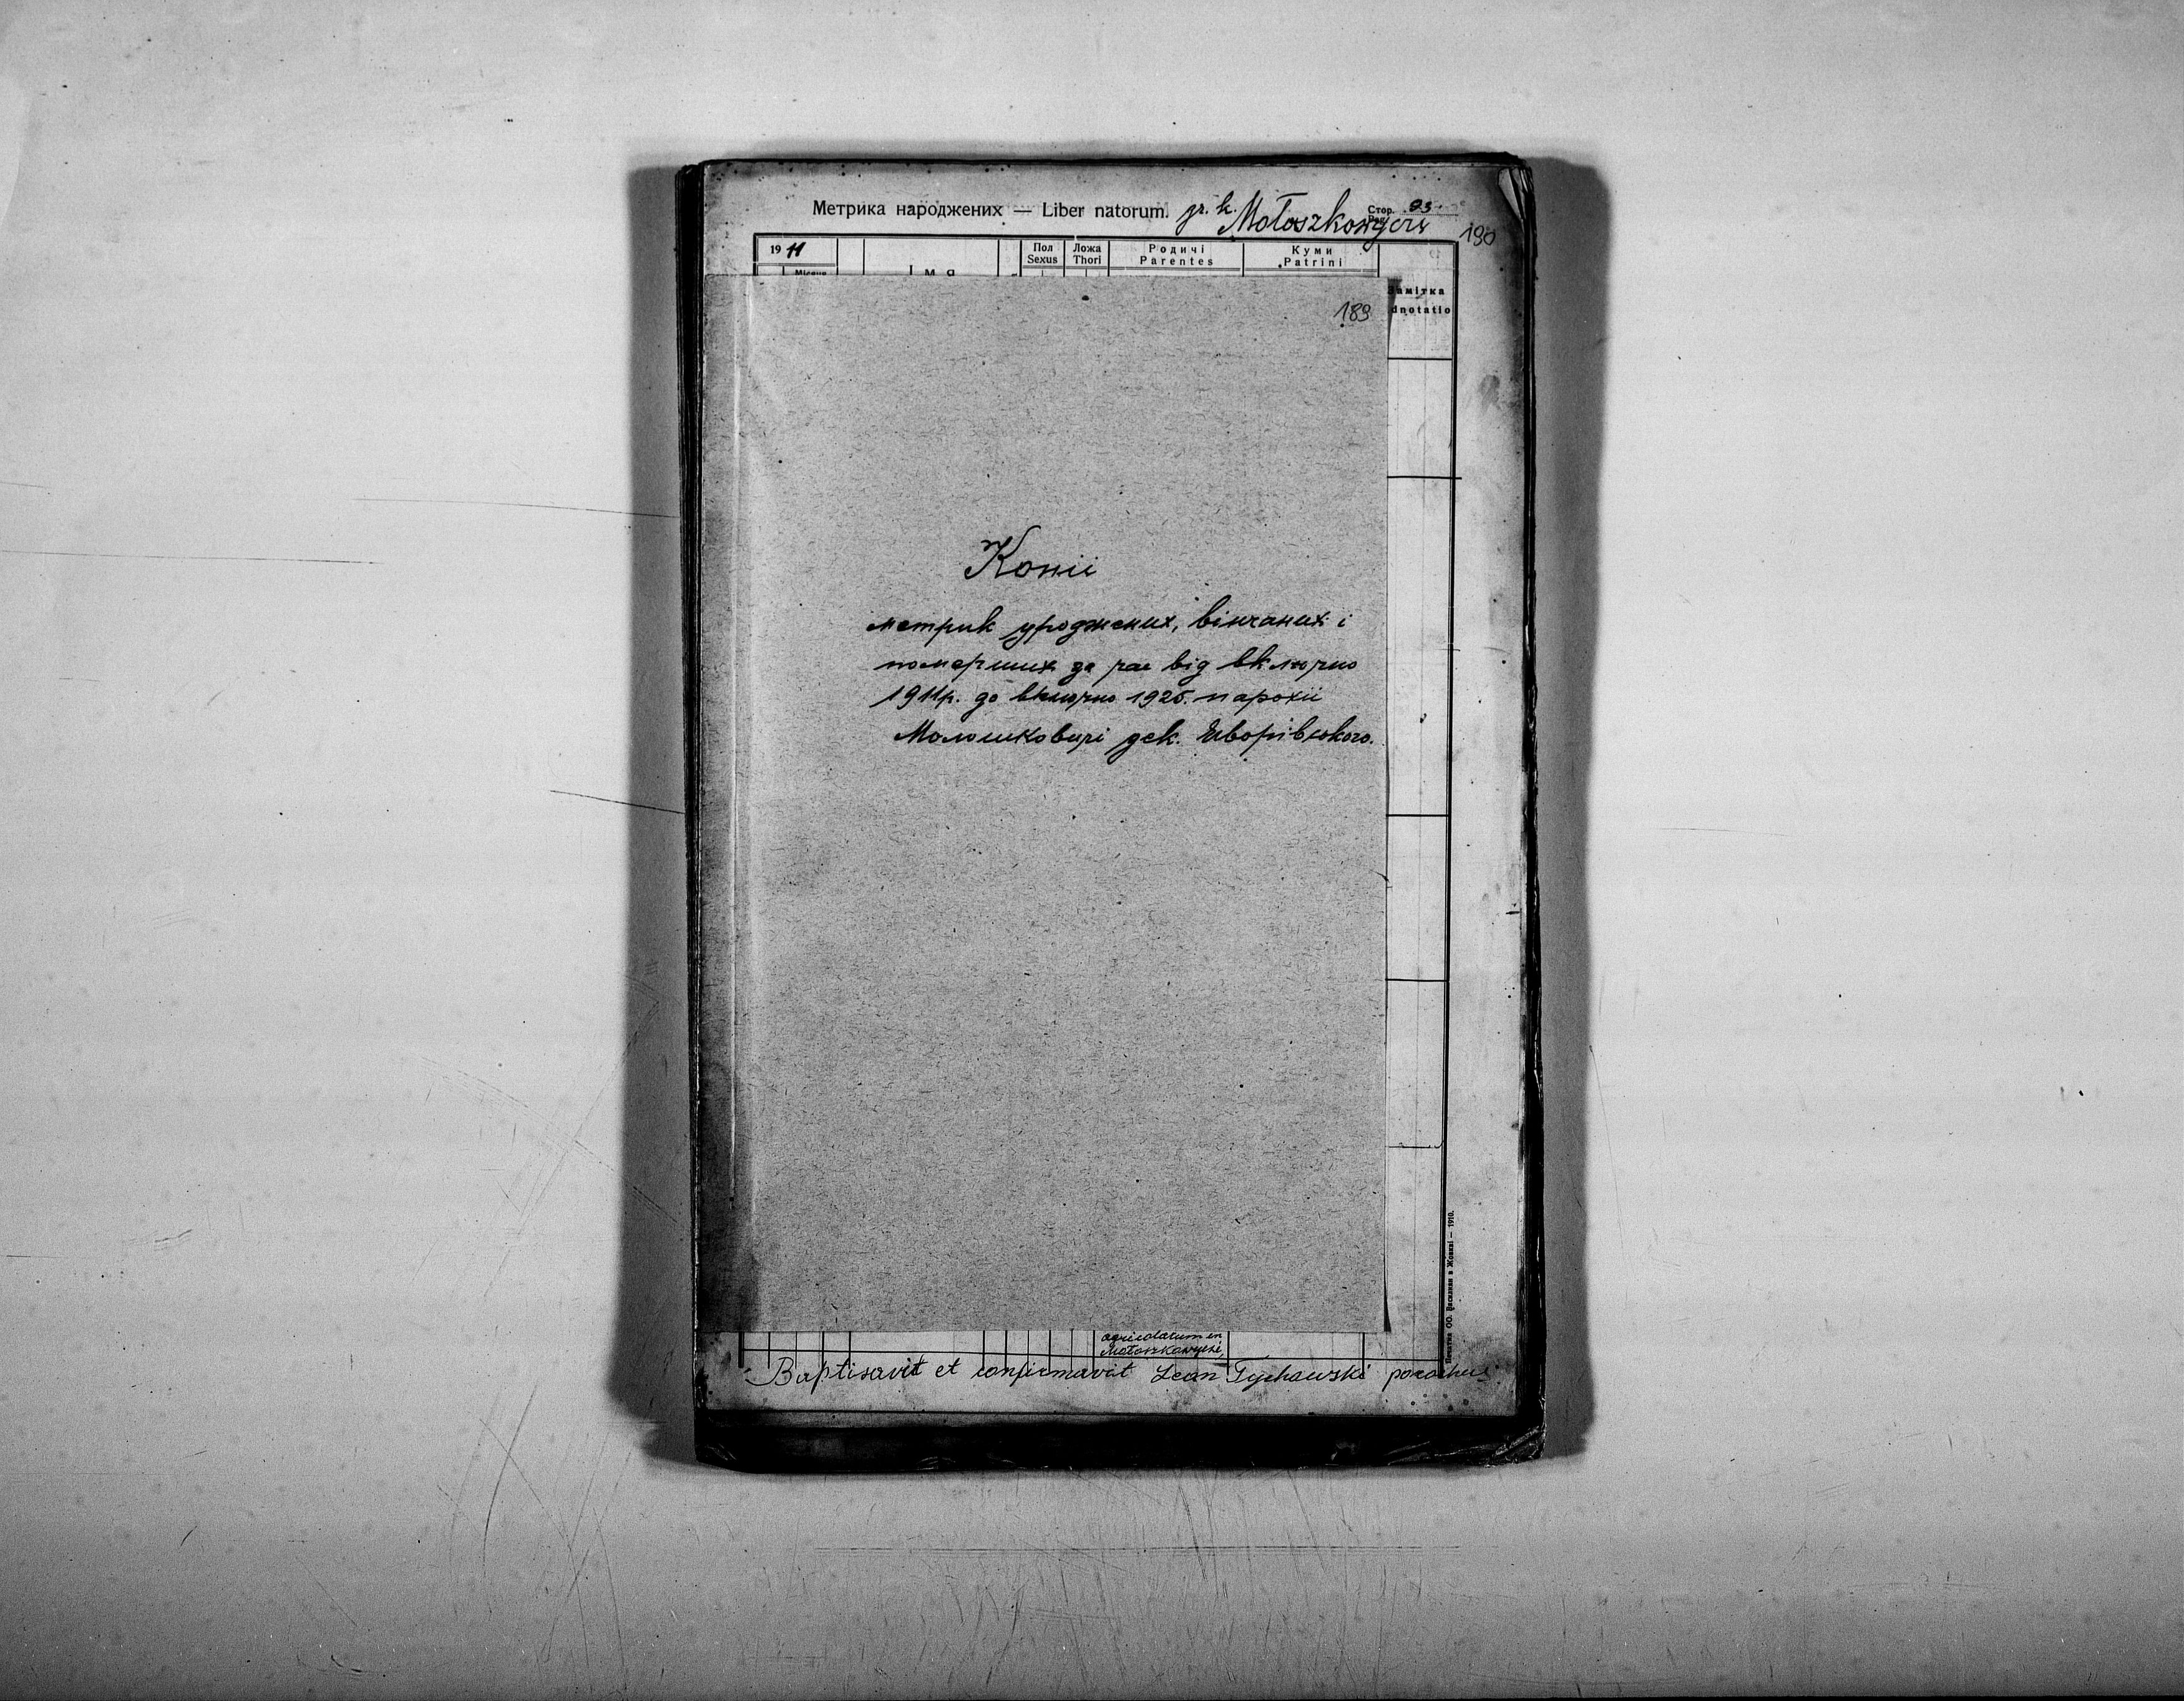 Метрика народжених — Liber natorum. gr. k. Mołoszkowyczi Стор. 93
190
19 11 Пол Ложа Родичі Куми
Sexus Thori Parentes Patrini
Імя
Замітка
dnotatio
189
Копії
метрик уроджених, вінчаних і
померших за час від включно
1911р. до включно 1925. парохії
Молошковичі дек. Яворівского.
agricolarum in
Mołoszkowychi,
Baptisavit et confirmavit Leon Tychowski parochus
Печатня ОО. Василиян в Жовкві — 1910.